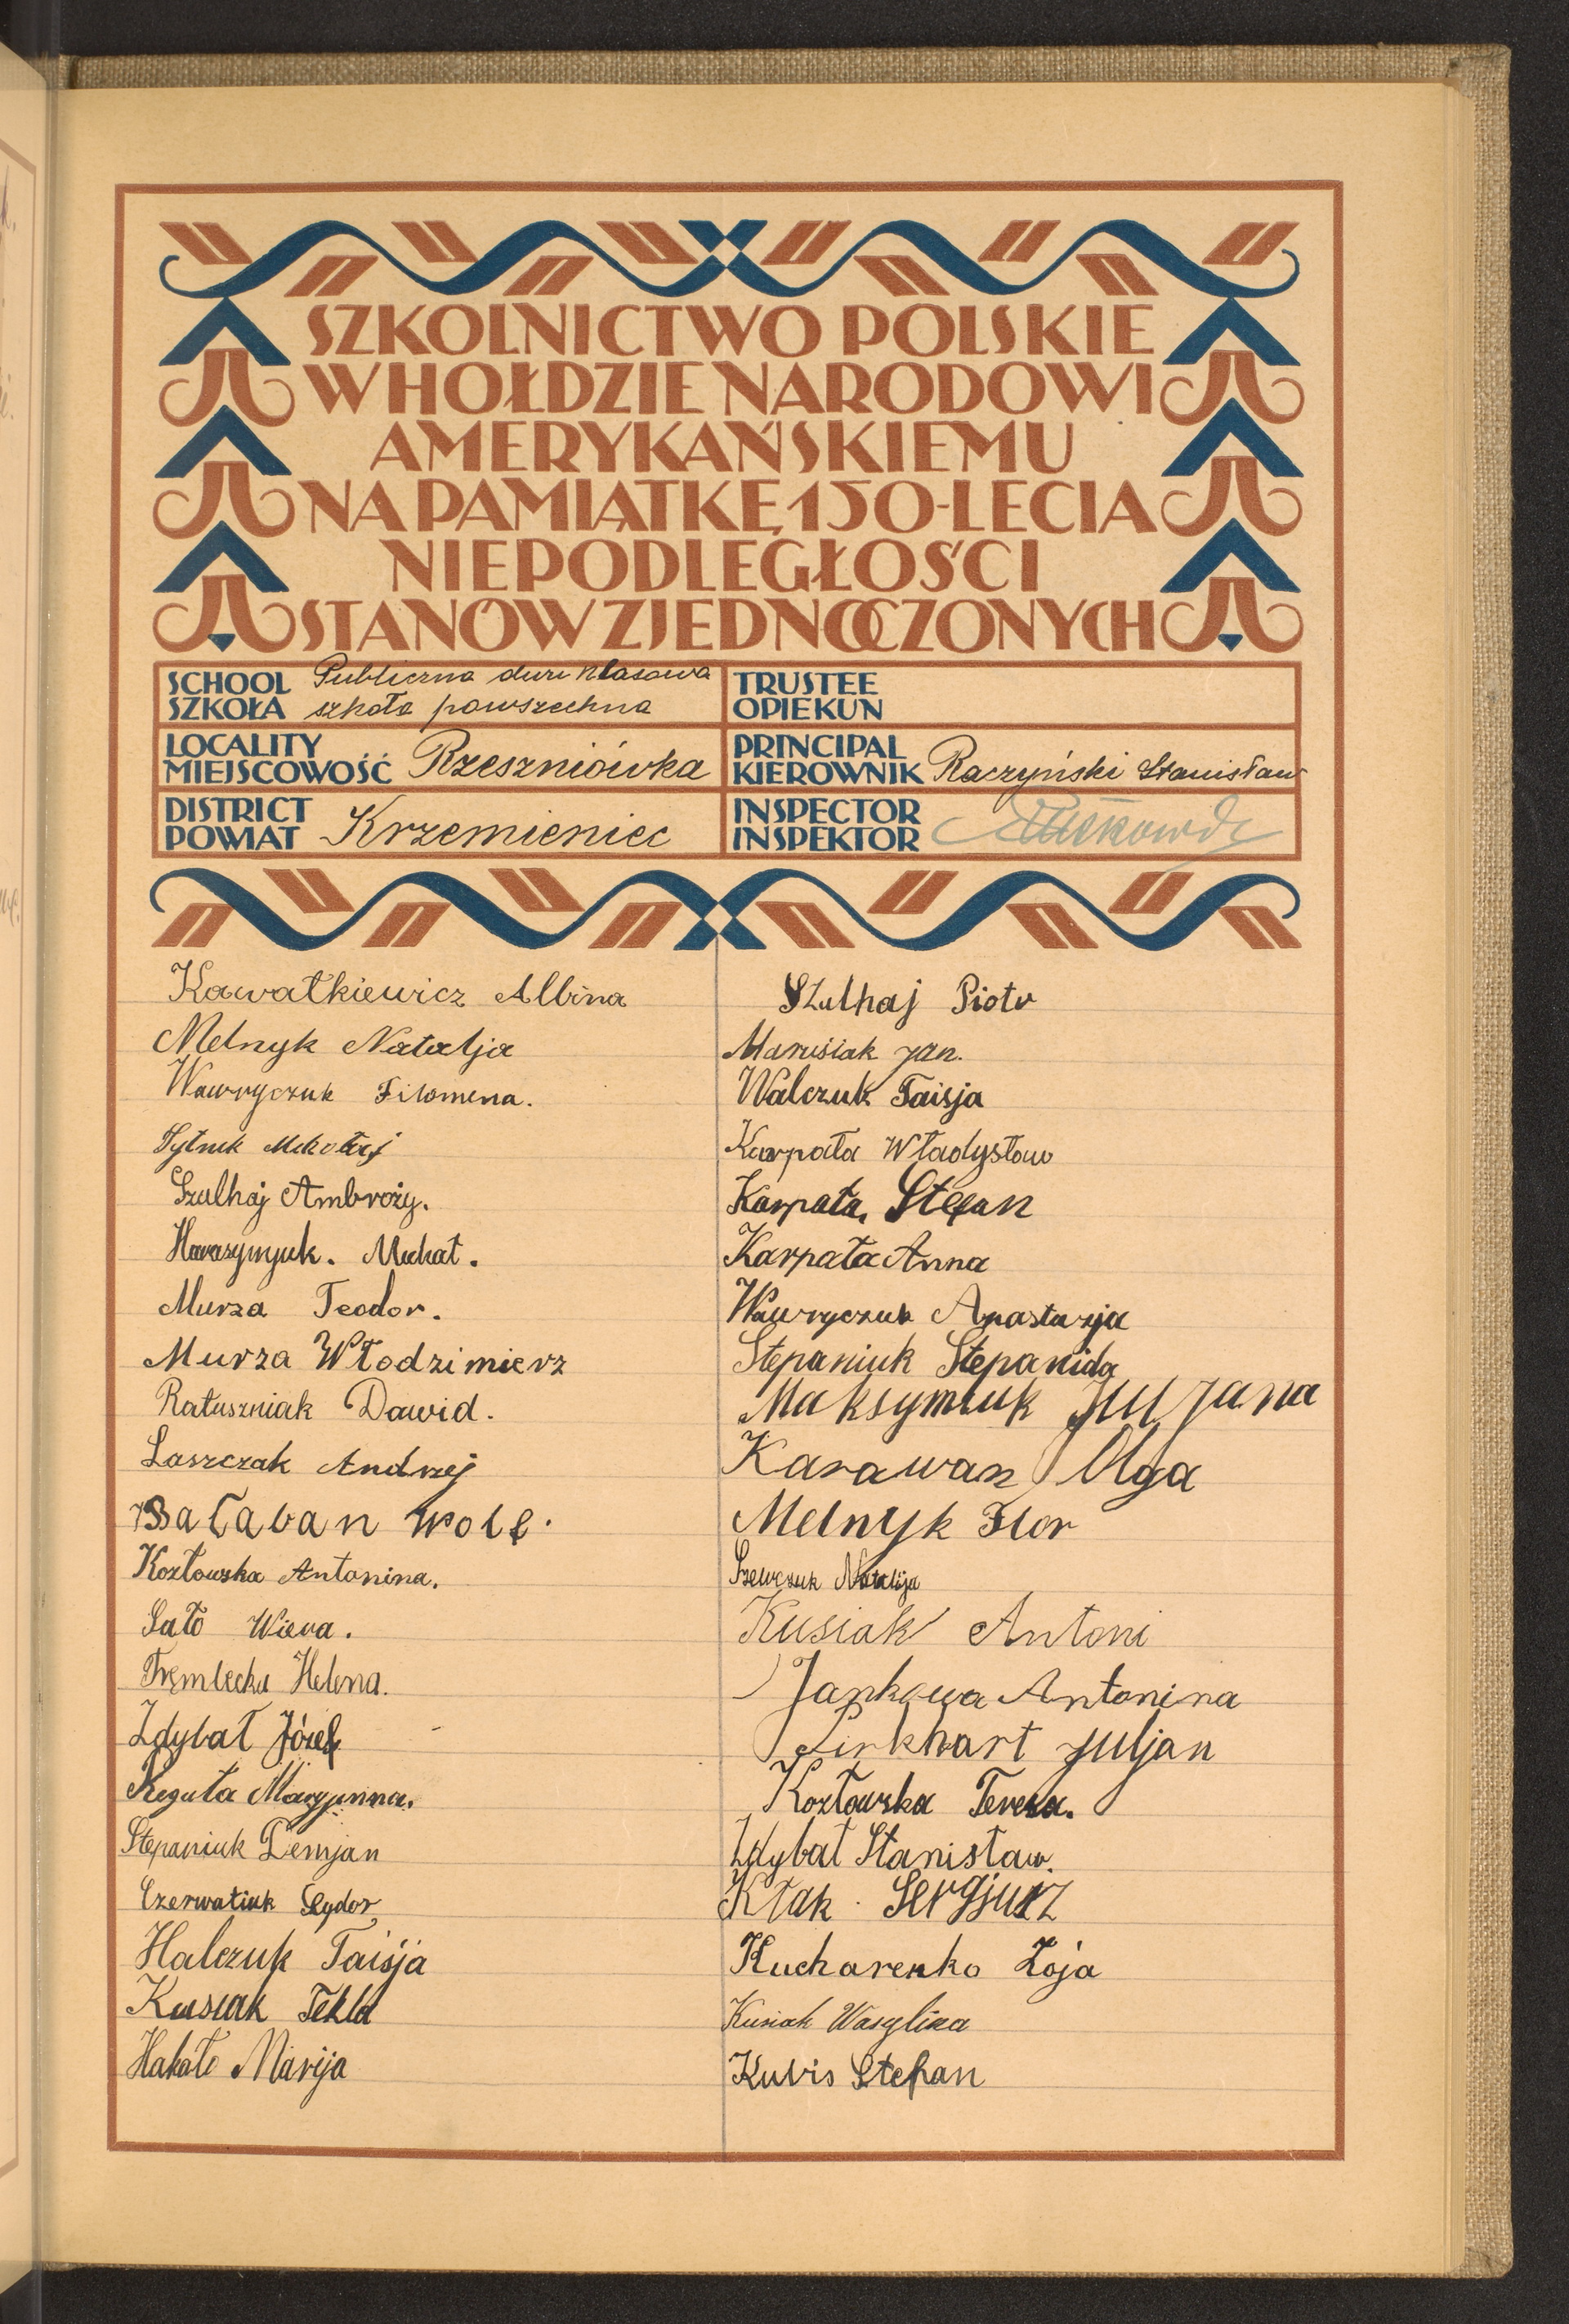 SZKOLNICTWO POLSKIE
W HOŁDZIE NARODOWI
AMERYKAŃSKIEMU
NA PAMIĄTKĘ 150-LECIA
NIEPODLEGŁOŚCI
STANÓW ZJEDNOCZONYCH
SCHOOL Publiczna dwu klasowa
SZKOŁA szkoła powszechna
TRUSTEE
OPIEKUN
LOCALITY
MIEJSCOWOŚĆ Rzeszniówka
PRINCIPAL
KIEROWNIK Raczyński Stanisław
DISTRICT
POWIAT Krzemieniec
INSPECTOR
INSPEKTOR
Kawałkiewicz Albina
Melnyk Natalja
Wawryczuk Filomena.
Sytnik Mikołaj
Szulhaj Ambroży.
Harasymjuk. Michał.
Murza Teodor.
Murza Włodzimierz
Ratuszniak Dawid.
Laszczak Andrzej
Bałaban Wolf.
Kozłowska Antonina.
Sało Wiera.
Helena.
Zdybał Józef
Reguła Maryjanna.
Stepaniuk Demjan
Czerwatiuk Sydor
Halczuk Taisja
Kusiak Tekla
Hakało Marija
Szulhaj Piotr
Marusiak Jan.
Walczuk Taisja
Karpała Władysław
Karpała, Stefan
Karpała Anna
Wawryczuk Anastazja
Stepaniuk Stepanida
Maksymiuk Juljana
Karawan Olga
Melnyk Flor
Szewczuk Natalija
Kusiak Antoni
Jankowa Antonina
Linkhart Juljan
Kozłowska Teresa.
Zdybał Stanisław.
Kłak Sergjusz
Kucharenko Zoja
Kusiak Wasylina
Kubis Stefan